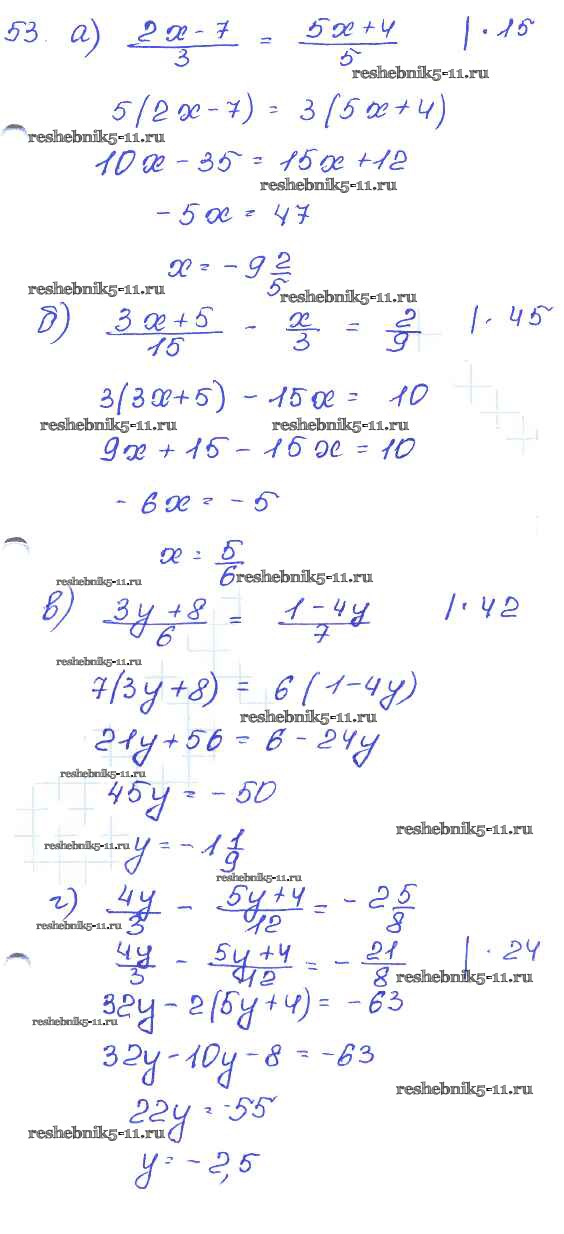 53. а) (2x-7)/3 = (5x+4)/5 |·15
reshebnik5-11.ru
5(2x-7) = 3(5x+4)
reshebnik5-11.ru
10x - 35 = 15x + 12
reshebnik5-11.ru
-5x = 47
x = -9 2/5
reshebnik5-11.ru
reshebnik5-11.ru
б) (3x+5)/15 - x/3 = 2/9 |· 45
3(3x+5) - 15x = 10
reshebnik5-11.ru reshebnik5-11.ru
9x + 15 - 15x = 10
-6x = -5
x = 5/6
reshebnik5-11.ru
reshebnik5-11.ru
в) (3y+8)/6 = (1-4y)/7 |·42
reshebnik5-11.ru
7(3y+8) = 6(1-4y)
reshebnik5-11.ru
21y+56 = 6 - 24y
reshebnik5-11.ru
45y = -50
reshebnik5-11.ru
reshebnik5-11.ru
y = -1 1/9
reshebnik5-11.ru
г) 4y/3 - (5y+4)/12 = -2 5/8
reshebnik5-11.ru
4y/3 - (5y+4)/12 = -21/8 |· 24
reshebnik5-11.ru
32y - 2(5y+4) = -63
reshebnik5-11.ru
32y - 10y - 8 = -63
reshebnik5-11.ru
22y = -55
reshebnik5-11.ru
y = -2,5